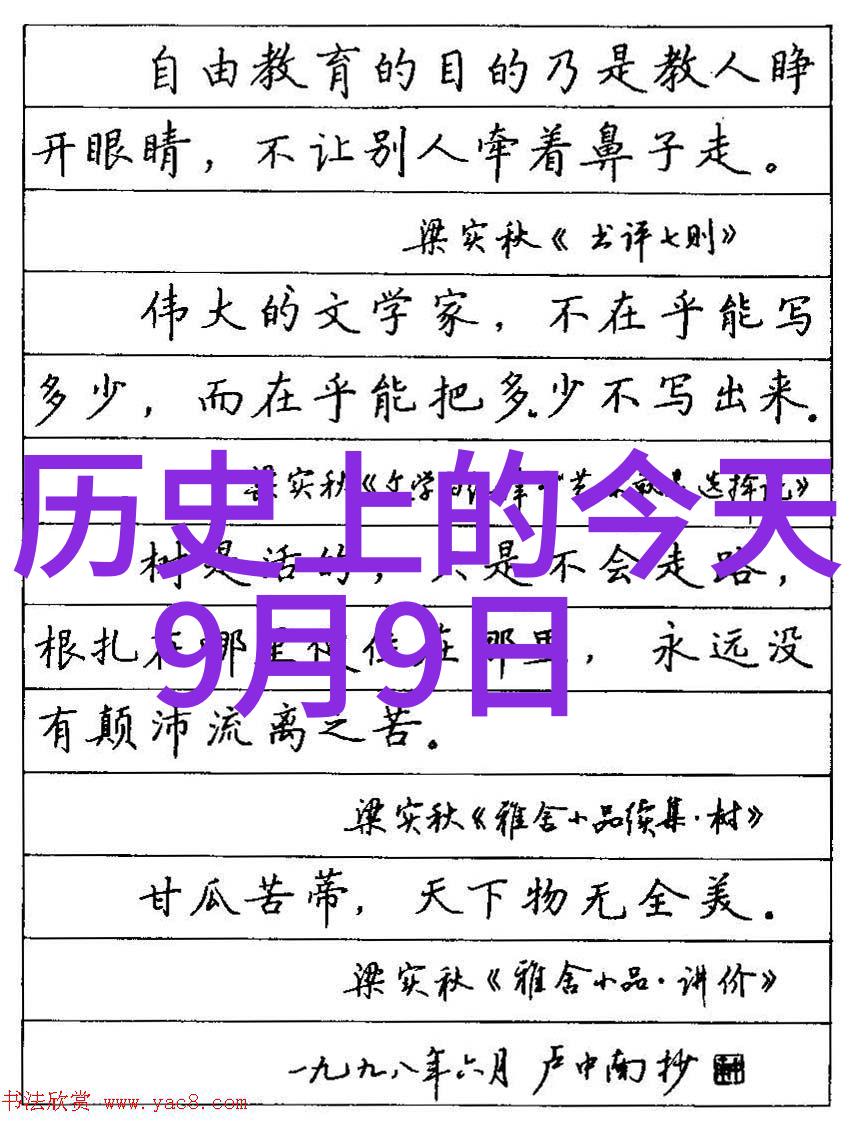 自由教育的目的乃是教人睁
开眼睛，不让别人牵着鼻子走。
梁实秋《书评七则》
伟大的文学家，不在乎能写
多少，而在乎能把多少不写出来．
梁实秋《文学的 选择说》
历史上的今天
树是活的，只是不会走路，
9月9日
根扎在哪里便住在那里，永远没
有颠沛流离之苦。
梁实秋《雅舍小品续集·树》
甘瓜苦蒂，天下物无全美．
梁实秋《雅舍小品·讲价》
一九九八年六月 卢中南抄
书法欣赏 www.yac8.com